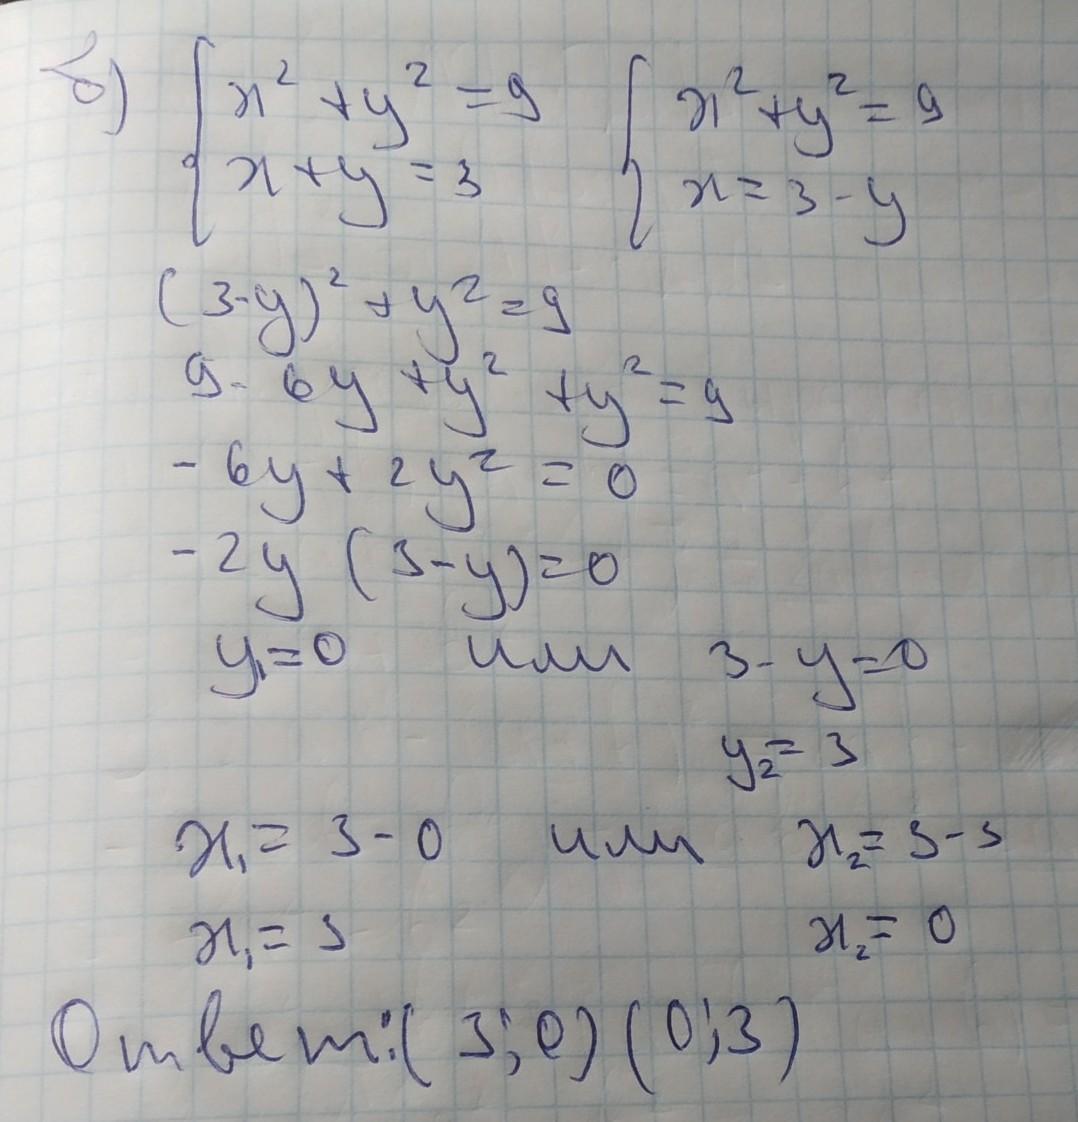 б) { x² + y² = 9 { x² + y² = 9
x + y = 3 x = 3 - y
(3-y)² + y² = 9
9 - 6y + y² + y² = 9
- 6y + 2y² = 0
- 2y (3-y) = 0
y₁ = 0 или 3 - y = 0
y₂ = 3
x₁ = 3 - 0 или x₂ = 3 - 3
x₁ = 3 x₂ = 0
Ответ: (3; 0) (0; 3)